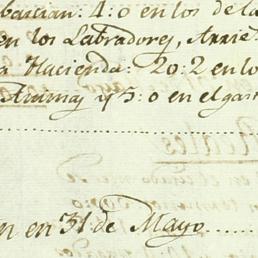 barcian: 4: 0 en los de la
en los Labradores, Arrie
a Hacienda: 20: 2 en lo
y 5: 0 en el gas
n en 31 de Mayo